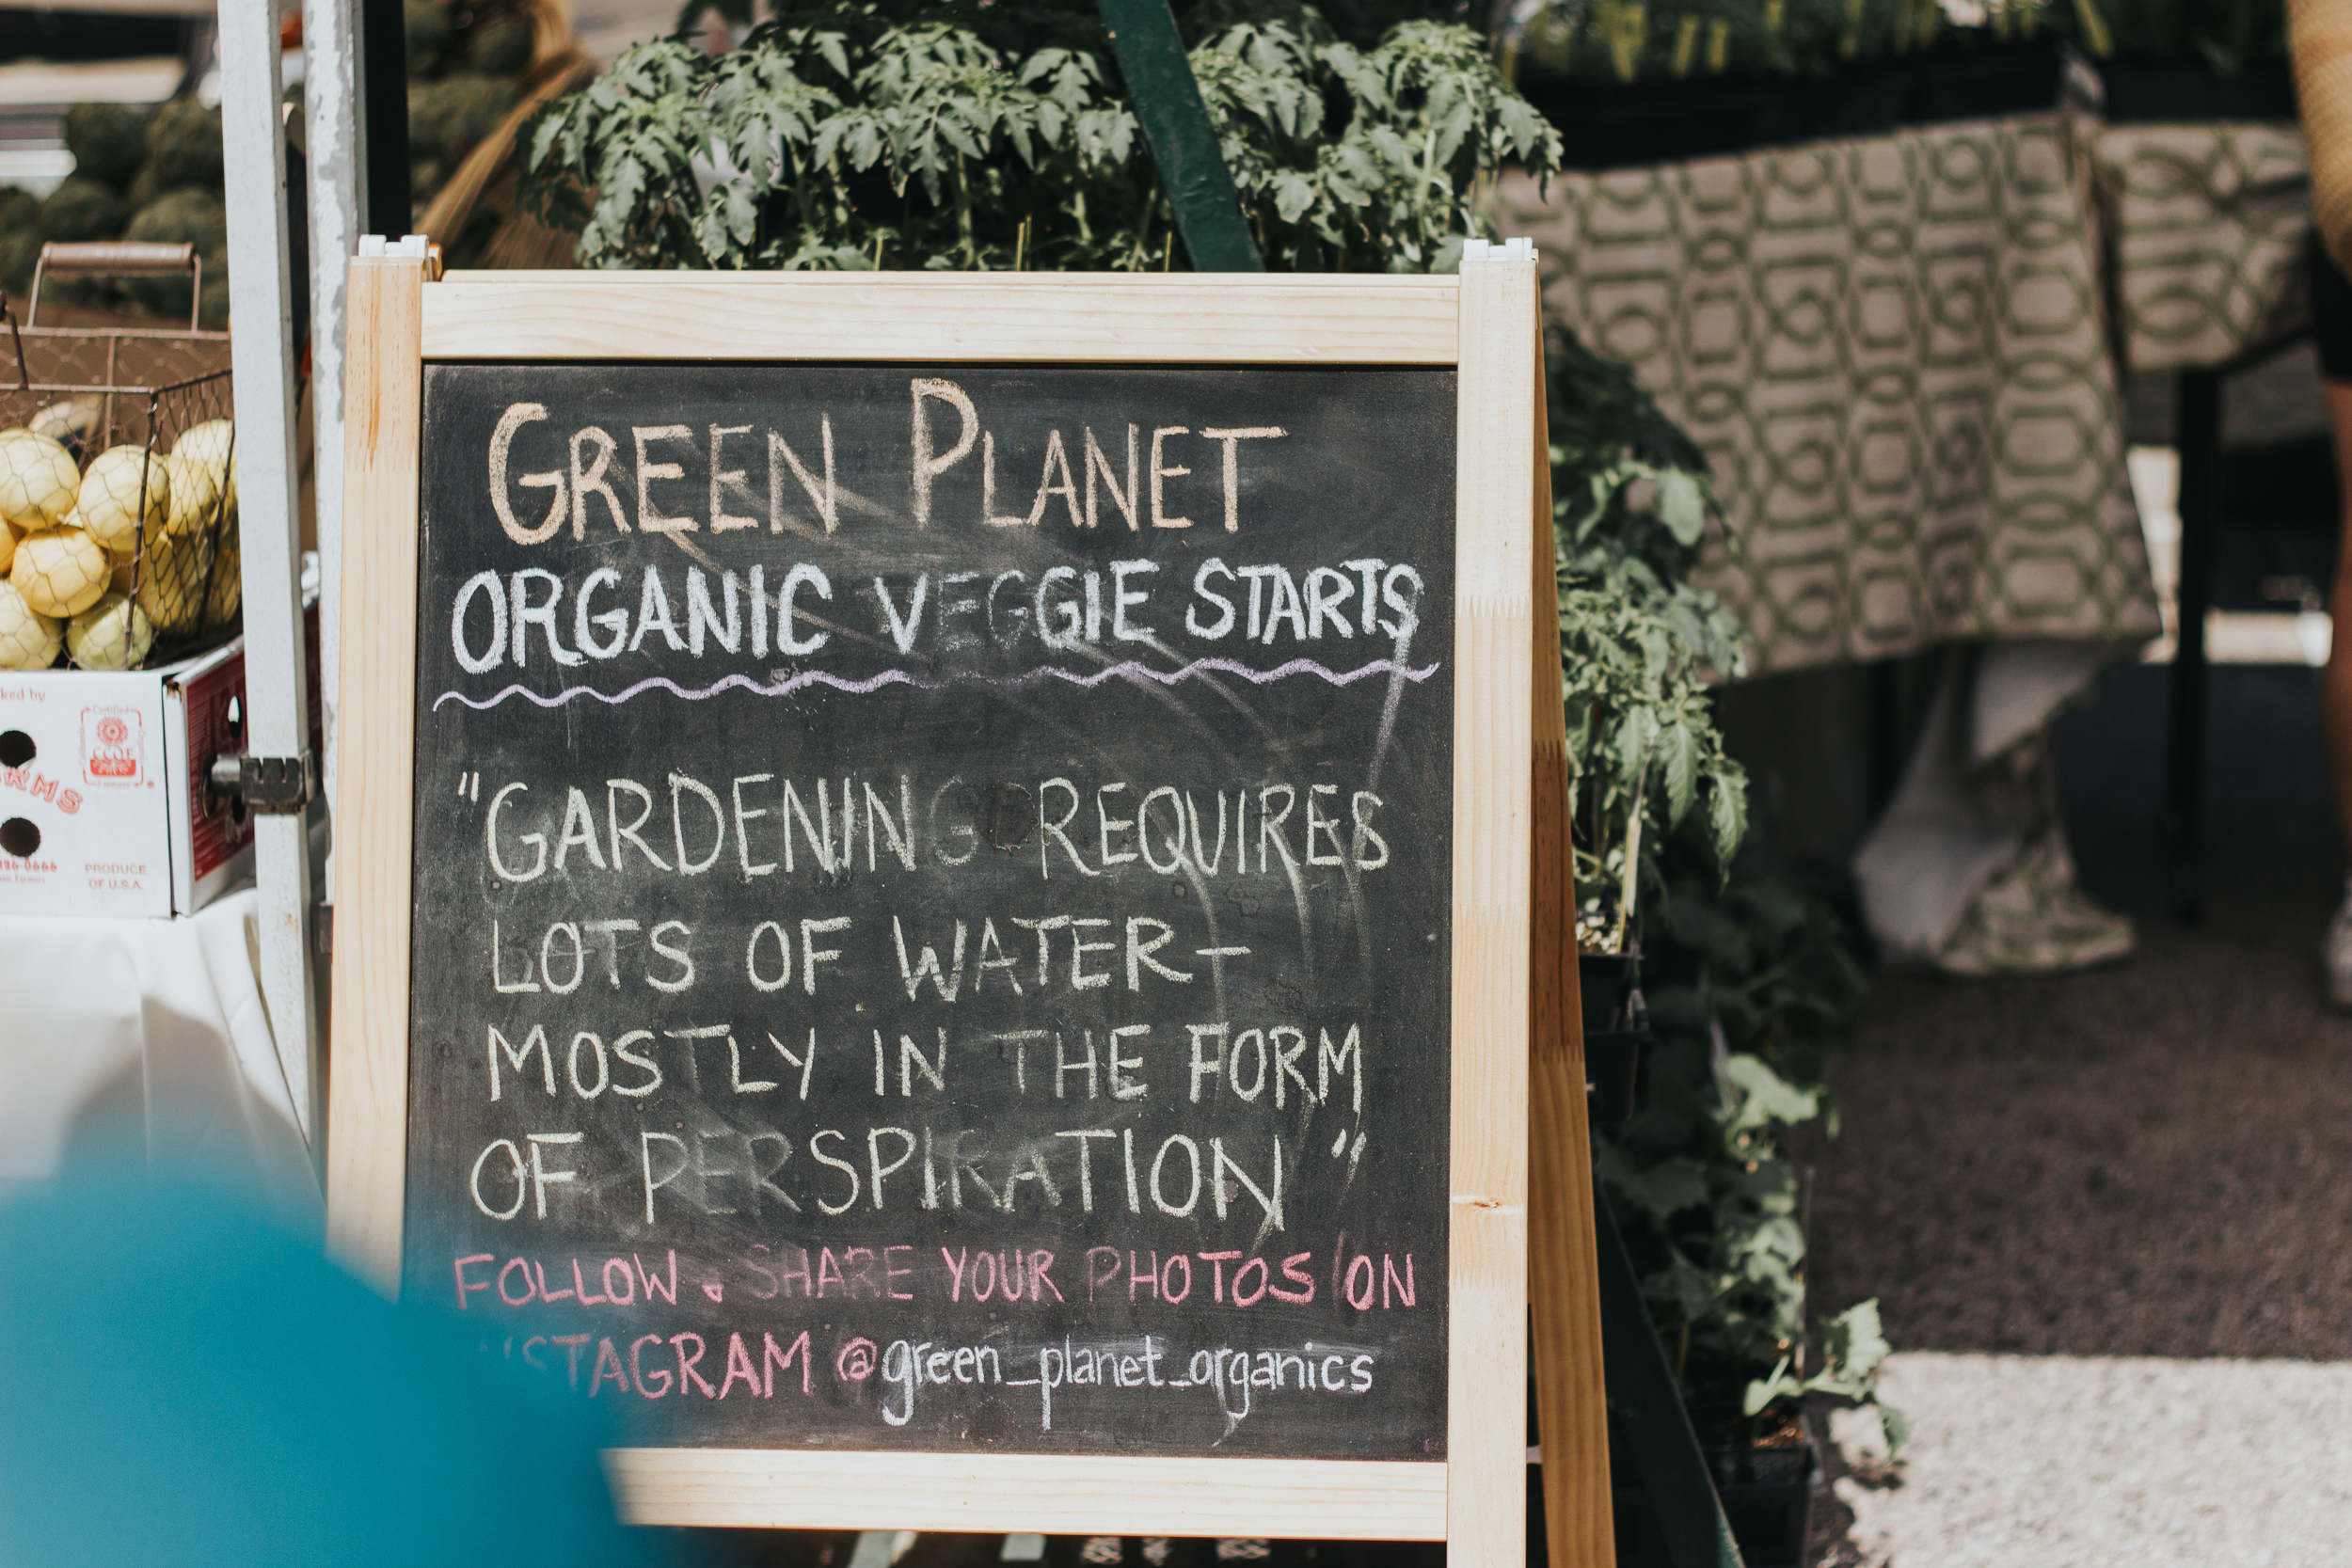 GREEN PLANET
ORGANIC VEGGIE STARTS
"GARDENING REQUIRES
LOTS OF WATER-
MOSTLY IN THE FORM
OF PERSPIRATION"
FOLLOW & SHARE YOUR PHOTOS ON
INSTAGRAM @green_planet_organics
ked by
Certified
CCOF
ARMS
26-0666
PRODUCE
OF U.S.A.